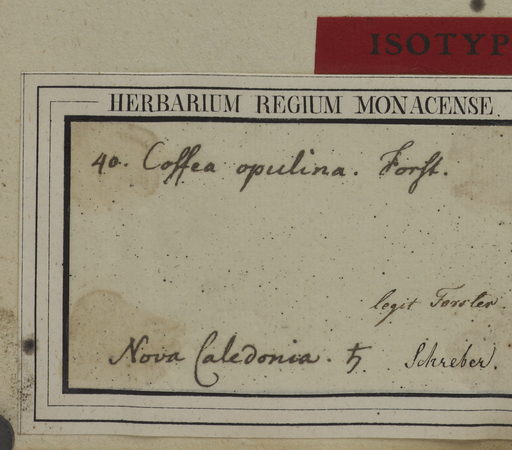 ISOTYP
HERBARIUM REGIUM MONACENSE.
40. Coffea opulina. Forst.
legit Forster.
Nova Caledonia. ♄ Schreber.